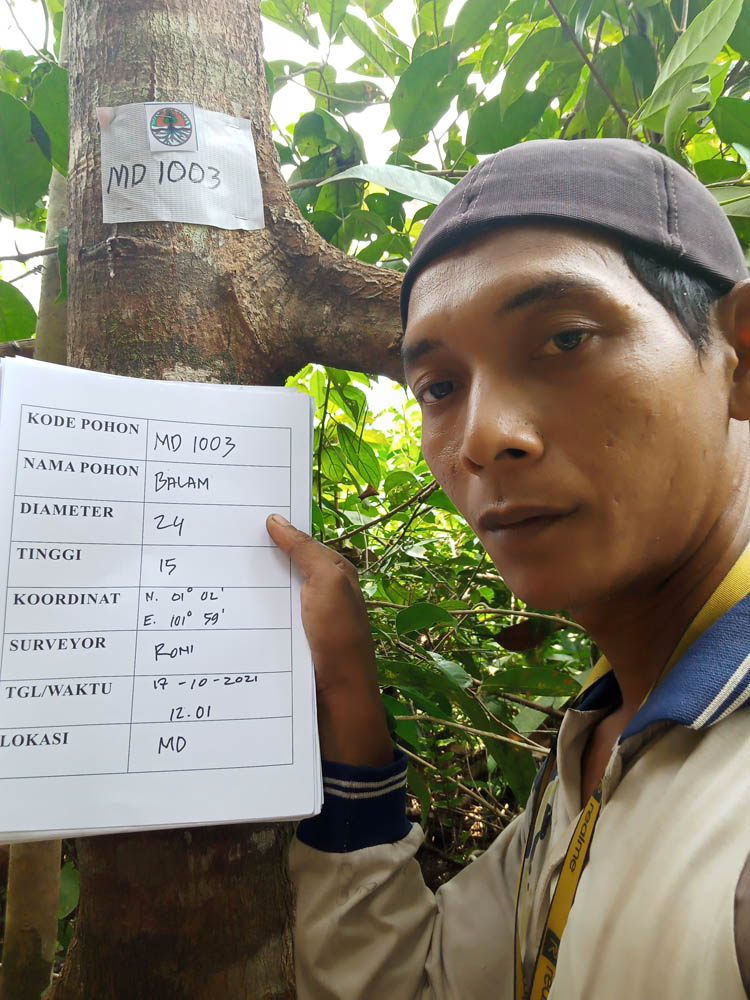 MD 1003
KODE POHON MD 1003
NAMA POHON BALAM
DIAMETER 24
TINGGI 15
KOORDINAT N. 01° 02'
E. 101° 59'
SURVEYOR ROMI
TGL/WAKTU 17-10-2021
12.01
LOKASI MD
realme